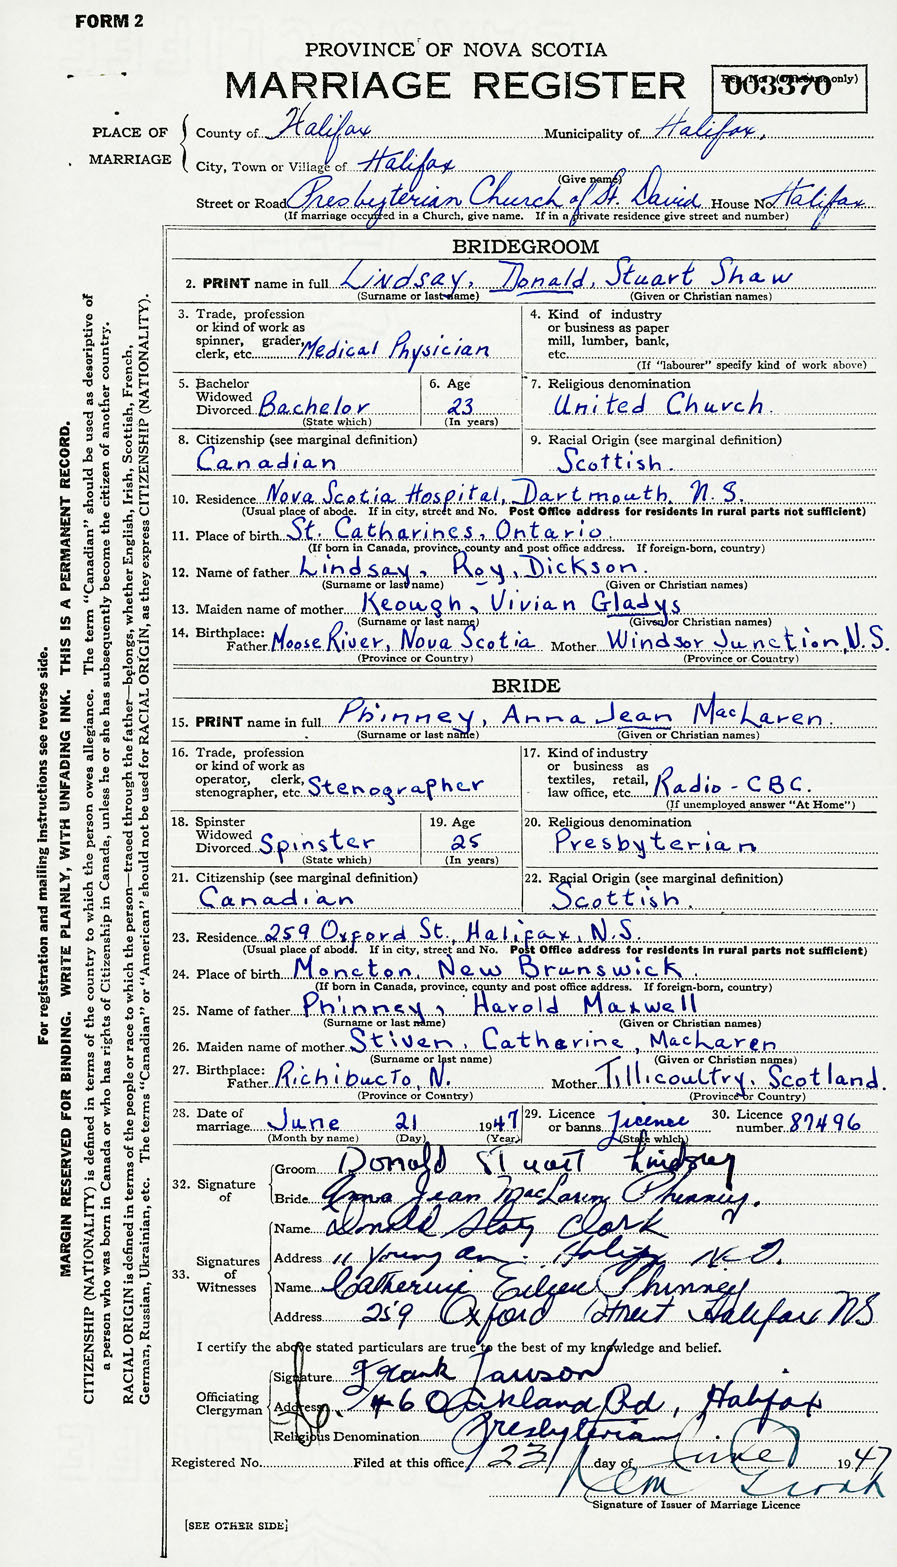 FORM 2
PROVINCE OF NOVA SCOTIA
MARRIAGE REGISTER
Reg. No. (Office use only)
003370
PLACE OF MARRIAGE
County of Halifax Municipality of Halifax,
City, Town or Village of Halifax
(Give name)
Street or Road Presbyterian Church of St. David House No. Halifax
(If marriage occurred in a Church, give name. If in a private residence give street and number)
BRIDEGROOM
2. PRINT name in full Lindsay, Donald, Stuart Shaw
(Surname or last name) (Given or Christian names)
3. Trade, profession or kind of work as spinner, grader, clerk, etc. Medical Physician
4. Kind of industry or business as paper mill, lumber, bank, etc.
(If "labourer" specify kind of work above)
5. Bachelor Widowed Divorced Bachelor
(State which)
6. Age 23
(In years)
7. Religious denomination United Church.
8. Citizenship (see marginal definition)
Canadian
9. Racial Origin (see marginal definition)
Scottish.
10. Residence Nova Scotia Hospital, Dartmouth, N.S.
(Usual place of abode. If in city, street and No. Post Office address for residents in rural parts not sufficient)
11. Place of birth St. Catharines, Ontario.
(If born in Canada, province, county and post office address. If foreign-born, country)
12. Name of father Lindsay, Roy, Dickson.
(Surname or last name) (Given or Christian names)
13. Maiden name of mother Keough, Vivian Gladys
(Surname or last name) (Given or Christian names)
14. Birthplace: Father Moose River, Nova Scotia Mother Windsor Junction, N.S.
(Province or Country) (Province or Country)
BRIDE
15. PRINT name in full Phinney, Anna Jean MacLaren.
(Surname or last name) (Given or Christian names)
16. Trade, profession or kind of work as operator, clerk, stenographer, etc. Stenographer
17. Kind of industry or business as textiles, retail, law office, etc. Radio - CBC.
(If unemployed answer "At Home")
18. Spinster Widowed Divorced Spinster
(State which)
19. Age 25
(In years)
20. Religious denomination
Presbyterian
21. Citizenship (see marginal definition)
Canadian
22. Racial Origin (see marginal definition)
Scottish.
23. Residence 259 Oxford St., Halifax, N.S.
(Usual place of abode. If in city, street and No. Post Office address for residents in rural parts not sufficient)
24. Place of birth Moncton, New Brunswick.
(If born in Canada, province, county and post office address. If foreign-born, country)
25. Name of father Phinney, Harold Maxwell
(Surname or last name) (Given or Christian names)
26. Maiden name of mother Stiven, Catherine, MacLaren
(Surname or last name) (Given or Christian names)
27. Birthplace: Father Richibucto, N. Mother Tillicoultry, Scotland.
(Province or Country) (Province or Country)
28. Date of marriage June 21 1947
(Month by name) (Day) (Year)
29. Licence or banns Licence
(State which)
30. Licence number 87496
32. Signature of
Groom Donald Stuart Lindsay
Bride Anna Jean MacLaren Phinney.
33. Signatures of Witnesses
Name Donald Clark
Address 11 Young Halifax N.S.
Name Catherine Eileen Phinney
Address 259 Oxford Street Halifax NS
I certify the above stated particulars are true to the best of my knowledge and belief.
Officiating Clergyman
Signature Frank Lawson
Address 46 Oakland Rd, Halifax
Religious Denomination Presbyterian
Registered No. Filed at this office 23 day of June 1947
Signature of Issuer of Marriage Licence
[SEE OTHER SIDE]
For registration and mailing instructions see reverse side.
MARGIN RESERVED FOR BINDING. WRITE PLAINLY, WITH UNFADING INK. THIS IS A PERMANENT RECORD.
CITIZENSHIP (NATIONALITY) is defined in terms of the country to which the person owes allegiance. The term "Canadian" should be used as descriptive of
a person who was born in Canada or who has rights of Citizenship in Canada, unless he or she has subsequently become the citizen of another country.
RACIAL ORIGIN is defined in terms of the people or race to which the person—traced through the father—belongs, whether English, Irish, Scottish, French,
German, Russian, Ukrainian, etc. The terms "Canadian" or "American" should not be used for RACIAL ORIGIN, as they express CITIZENSHIP (NATIONALITY).